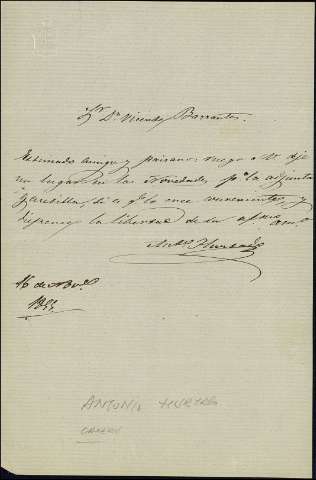 Sr Dn Vicente Barrantes.
Estimado amigo y paisano: ruego a V. deje
un lugar en las Novedades pa la adjunta
gacetilla, si es qe la cree conveniente, y
dispense la libertad de su afmo amo
Anto Hurtado
16 de Nove
ANTONIO HURTADO